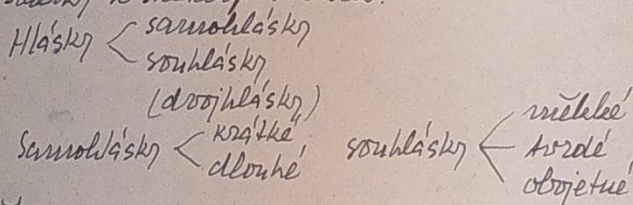 Hlásky < samohlásky
souhlásky
(dvojhlásky)
Samohlásky < krátké
dlouhé
souhlásky < měkké
tvrdé
obojetné